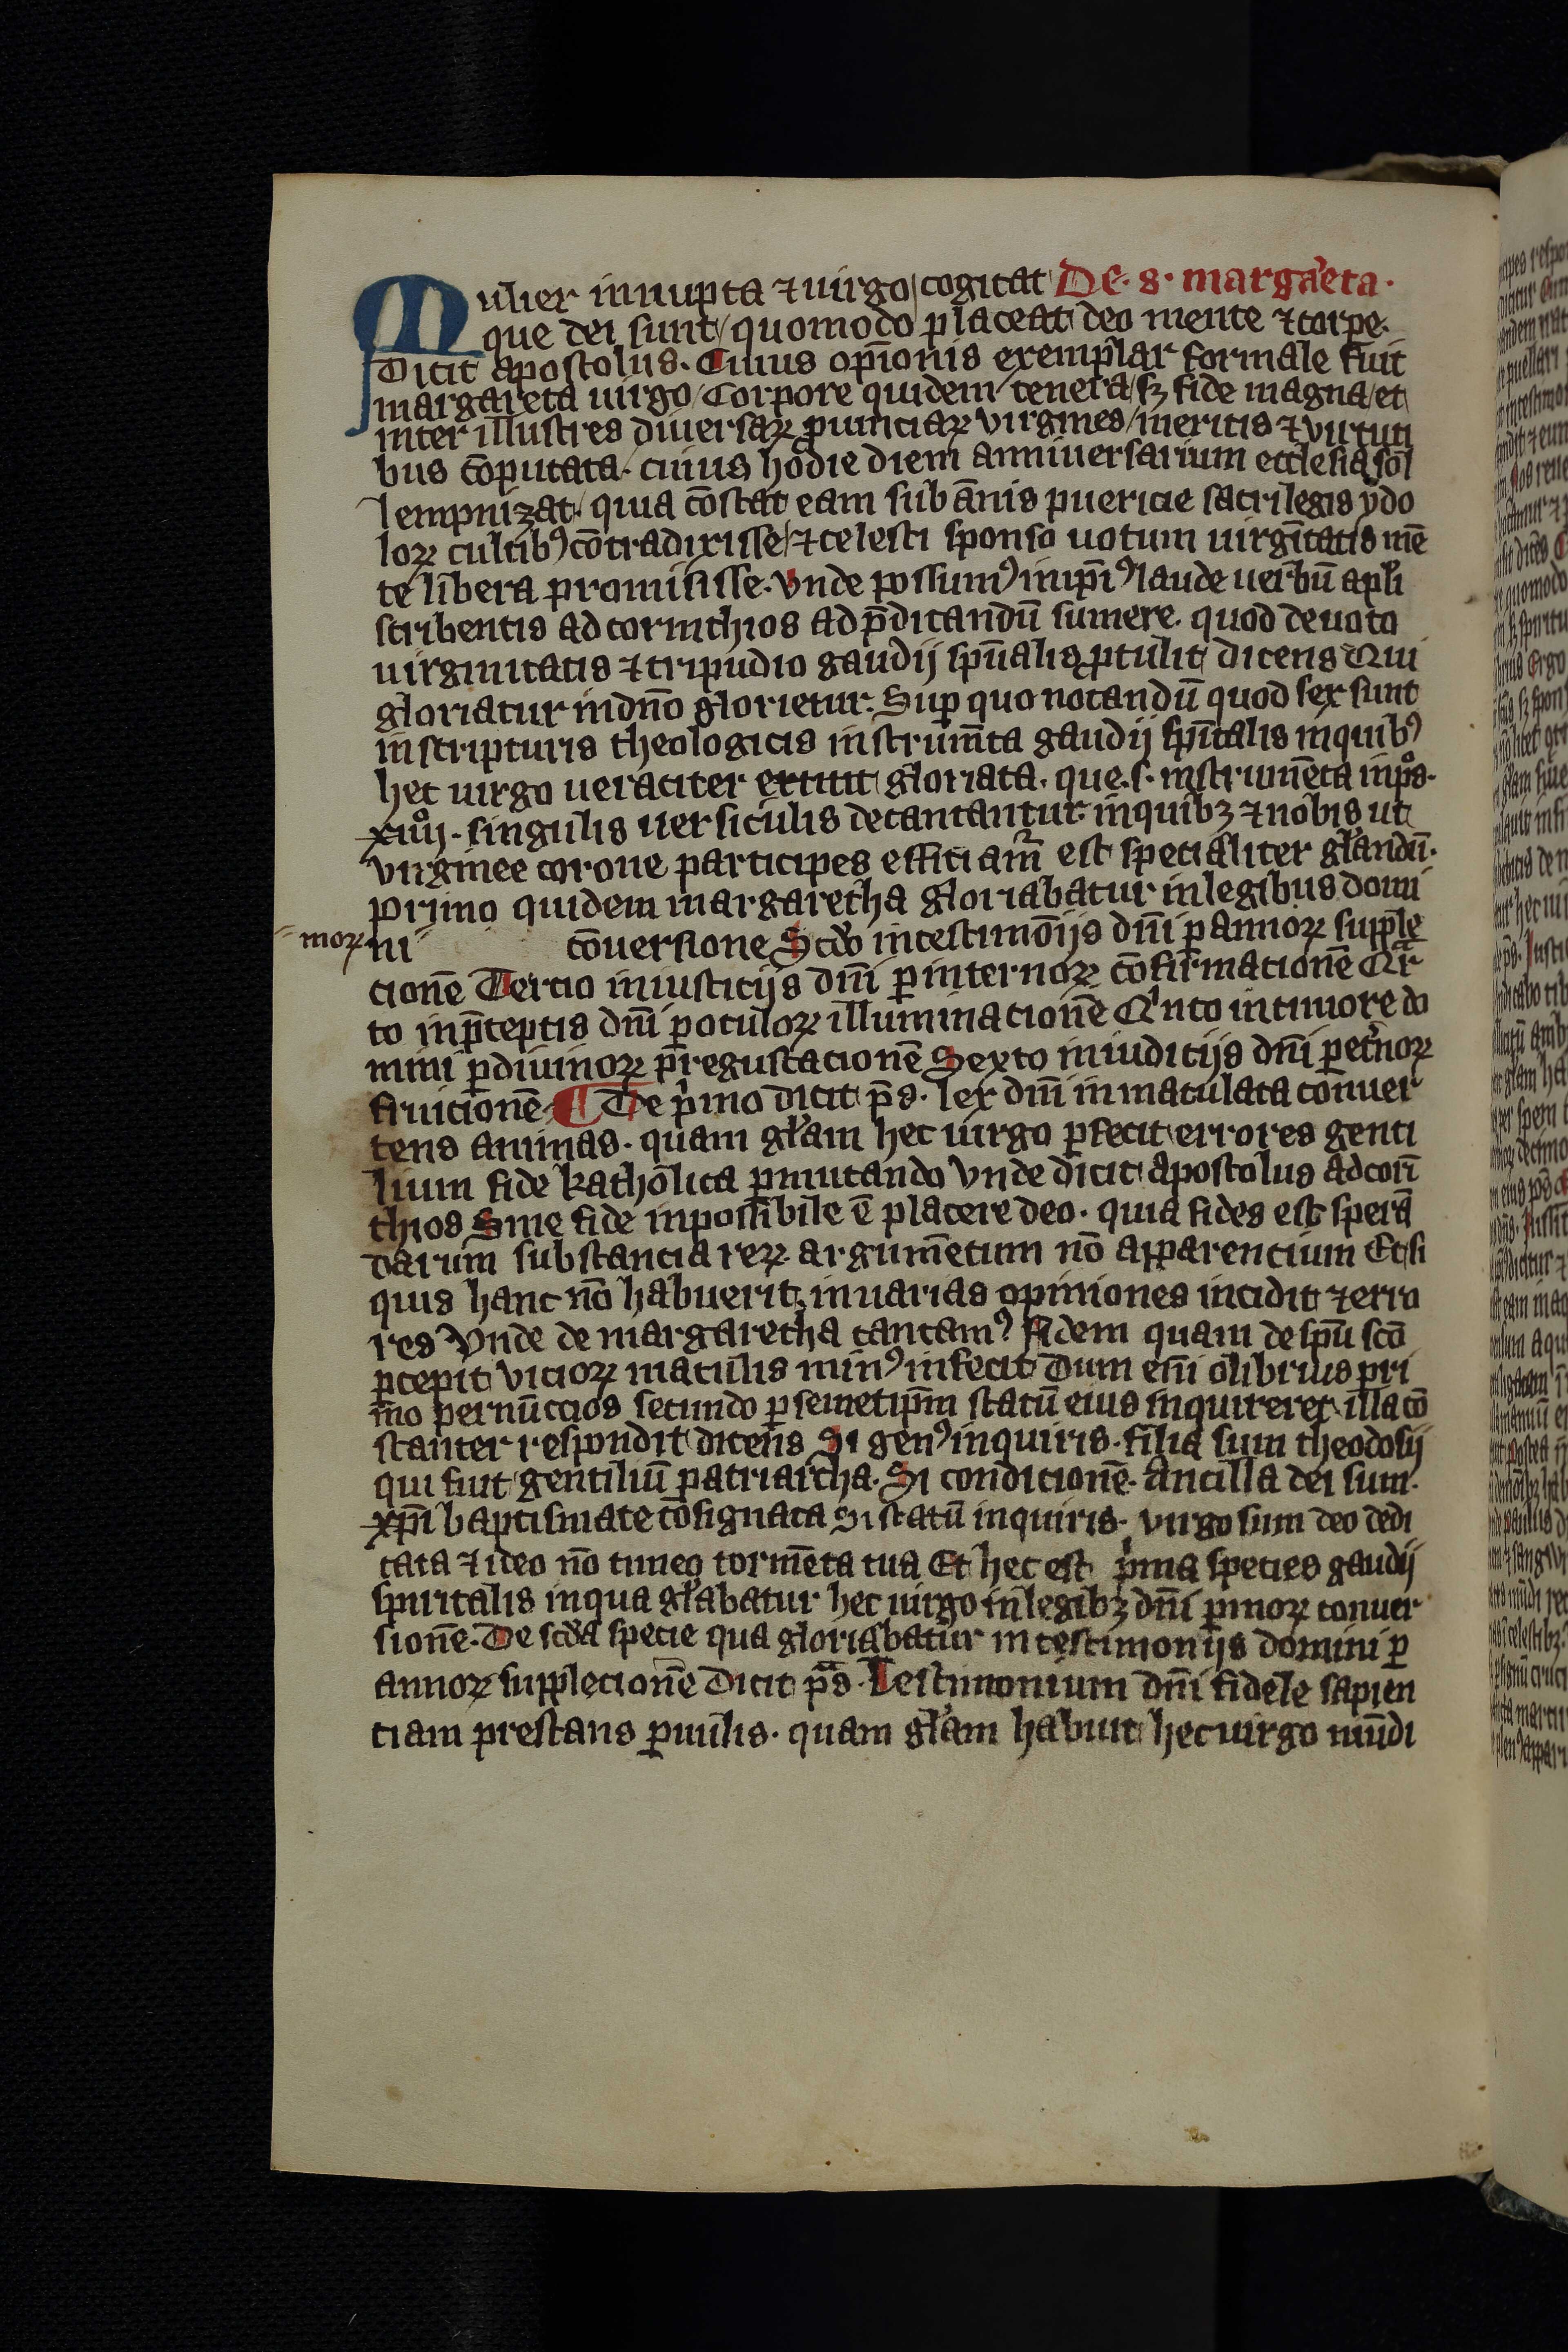 Mulier innupta ⁊ uirgo cogitat De. s. margar̉eta.
que dei sunt/ quomodo placeat deo mente ⁊ corpe.
Dicit apostolus. Cuius opīonis exemplar formale fuit
margareta uirgo/ Corpore quidem tenera/ sꝫ fide magna/ et
inter illustres diuersaꝝ ꝓuinciaꝝ virgines/ meritis ⁊ virtuti
bus cōputata. cuius hodie diem anniuersarium ecclesia sol
lempnizat. quia cōstat eam sub ānis puericie sacrilegis ydo
loꝝ cultibꝰ cōtradixisse/ ⁊ celesti sponso uotum uirgītatis mē
te libera promisisse. vnde possumꝰ in ip̄iꝰ laude uerbū apl̄i
scribentis ad corinthios ad p̄dicandū sumere. quod de uoto
uirginitatis ⁊ tripudio gaudij sp̄ualis ꝓtulit dicens Qui
gloriatur in dn̄o glorietur. Suꝑ quo notandū quod sex sunt
in scripturis theologicis instrum̄ta gaudij sp̄italis in quibꝰ
hec uirgo ueraciter extitit gloriata. que .s. instrumēta in pͦs.
xiiijͦ. singulis uersiculis decantantur in quibꝫ ⁊ nobis ut
virginee corone participes efficiam̄ est specialiter gl̓andū.
primo quidem margaretha gloriabatur in legibus domi
moꝝ ni cōuersione Scd̓o in testimōijs dn̄i ꝑ annoꝝ supple
cionē Tercio in iusticijs dn̄i ꝑ internoꝝ cōfirmacionē Qͣr
to in p̄ceptis dn̄i ꝑ oculoꝝ illuminacionē Qͥnto in timore do
mini ꝑ diuinoꝝ p̄regustacionē Sexto in iudicijs dn̄i ꝑ et̓noꝝ
fruicionē. ¶ De pͥmo dicit p̄s. lex dn̄i inmaculata conuer
tens animas. quam gl̓am hec uirgo ꝑfecit errores genti
lium fide katholica ꝑmutando Vnde dicit apostolus ad corī
thios Sine fide inpossibile ē placere deo. quia fides est sperā
darum substancia reꝝ. argumētum nō apparencium Et si
quis hanc nō habuerit, in uarias opiniones incidit ⁊ erro
res Vnde de margaretha cantamꝰ Fidem quam de sp̄u sc̄o
ꝑcepit, vicioꝝ maculis minꝰ infecit Dum em̄ olibrius pri
mo per nūccios secundo ꝑ semetip̄m statū eius inquireret. illa cō
stanter respondit dicens Si genꝰ inquiris. filia sum theodosij
qui fuit gentiliū patriarcha. Si condicionē. Ancilla dei sum.
xp̄i baptismate cōsignata Si statū inquiris. virgo sum deo dedi
cata ⁊ ideo nō timeo tormēta tua Et hec est pͥma species gaudij
spiritalis in qua gl̓abatur hec uirgo in legibꝫ dn̄i pͥmoꝝ conuer
sionē. De scd̓a specie qua gloriabatur in testimonijs domini ꝑ
annoꝝ supplecionē Dicit pͣs. Testimonium dn̄i fidele sapien
tiam prestans ꝑuulis. quam gl̓am habuit hec uirgo mūdi